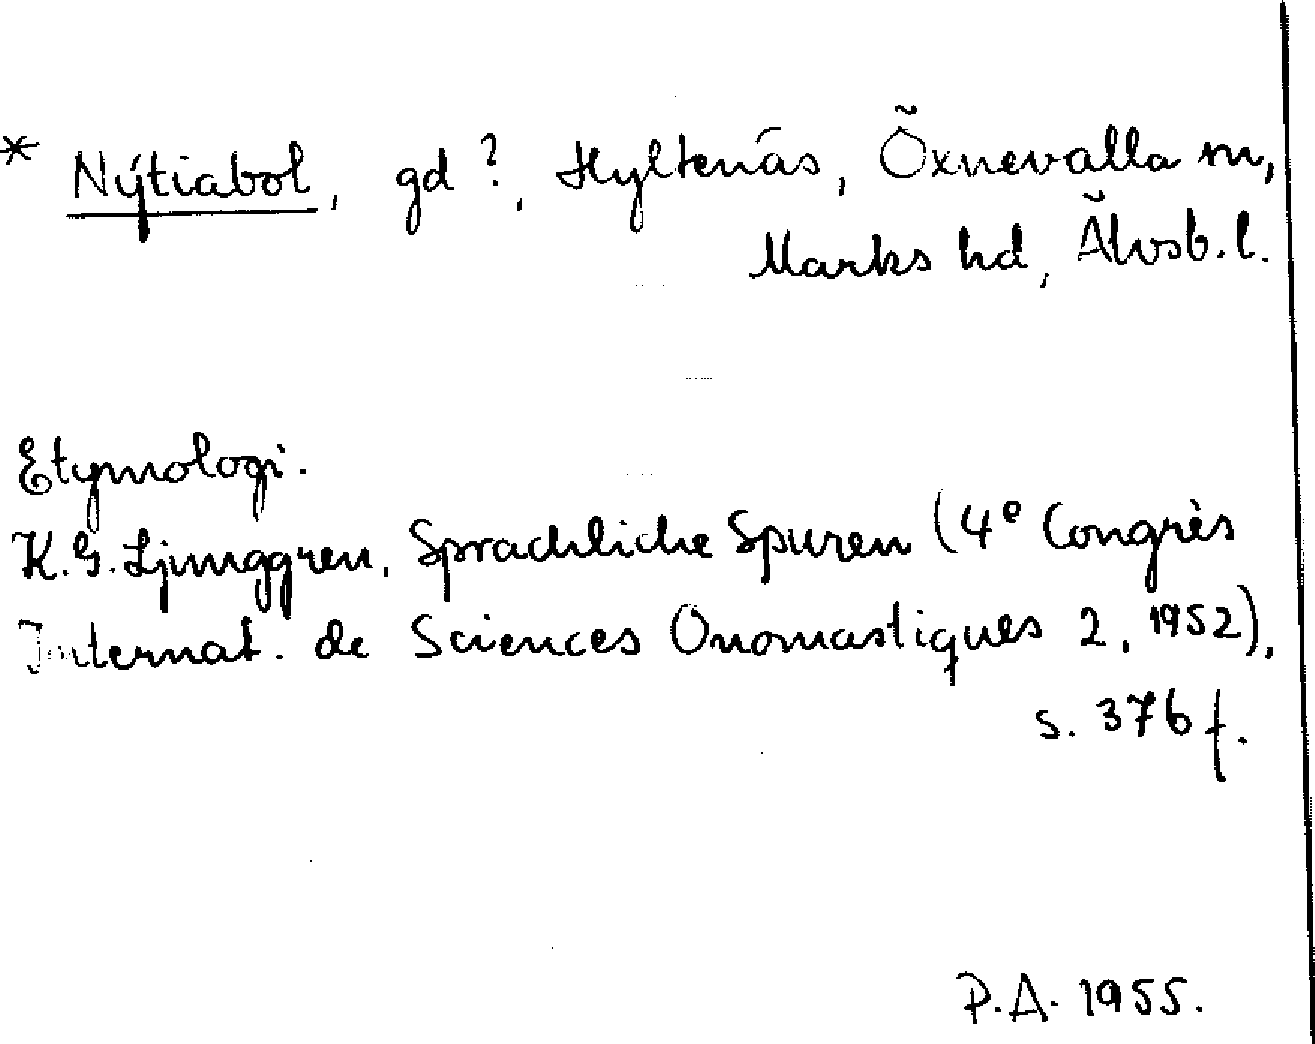 * Nýtiabol, gd ?, Hyltenäs, Öxnevalla sn,
Marks hd, Älvsb. l.
Etymologi.
K. G. Ljunggren, Sprachliche Spuren (4e Congrès
Internat. de Sciences Onomastiques 2, 1952),
s. 376 f.
P. A. 1955.